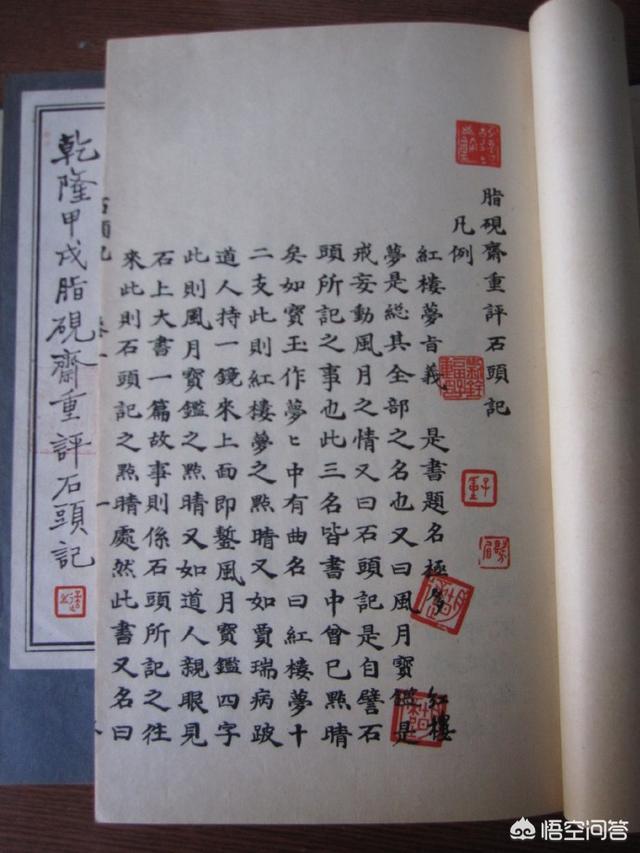 脂硯齋重評石頭記
凡例
紅樓夢旨義　是書題名極多　紅樓
夢是総其全部之名也又曰風月寶鑑是
戒妄動風月之情又曰石頭記是自譬石
頭所記之事也此三名皆書中曾已點晴
矣如寶玉作夢〻中有曲名曰紅樓夢十
二支此則紅樓夢之點晴又如賈瑞病跛
道人持一鏡來上面即鏨風月寶鑑四字
此則風月寶鑑之點晴又如道人親眼見
石上大書一篇故事則係石頭所記之往
來此則石頭記之點晴處然此書又名曰
石頭記　卷一　一
乾隆甲戌脂硯齋重評石頭記
悟空问答